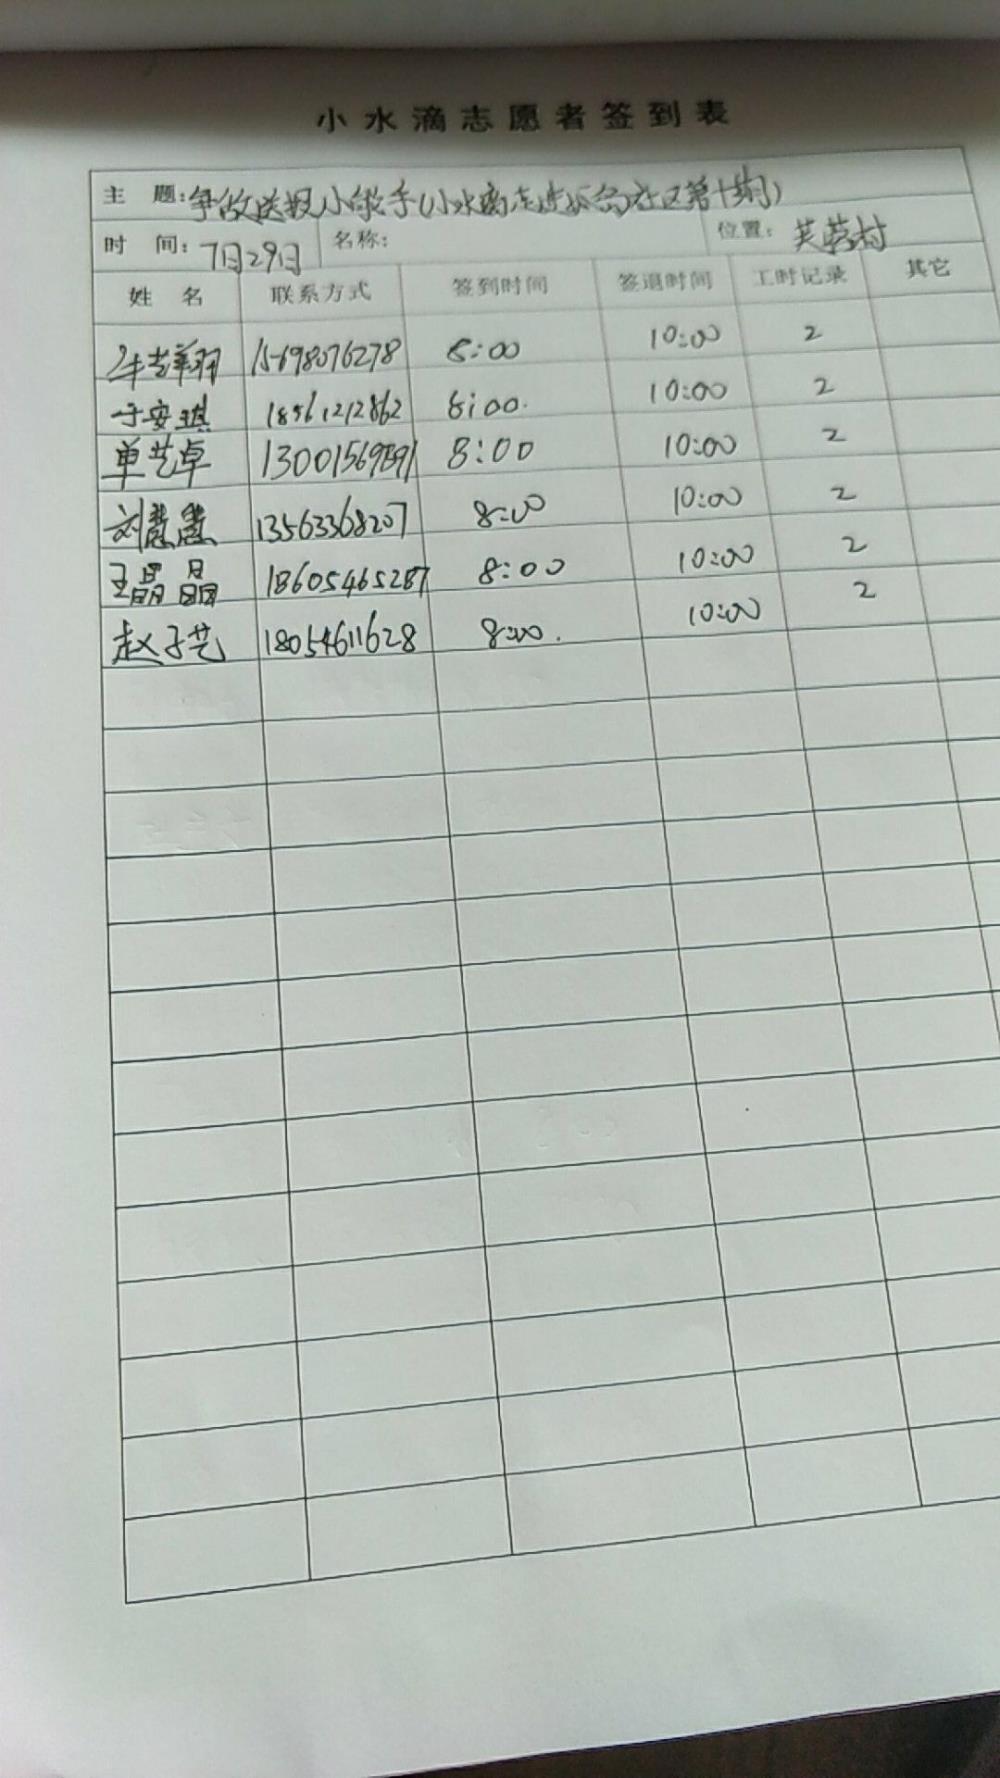 小水滴志愿者签到表
主 题: 争做送报小能手(小水滴走进 社区第十期)
时 间: 7月29日 名称: 位置: 芙蓉村
姓 名 联系方式 签到时间 签退时间 工时记录 其它
牛艺翔 15698076278 8:00 10:00 2
于安琪 18561212862 8:00. 10:00 2
单艺卓 13001569891 8:00 10:00 2
刘慧慧 13563368207 8:00 10:00 2
王晶晶 18605465287 8:00 10:00 2
赵子艺 18054611628 8:00. 10:00 2